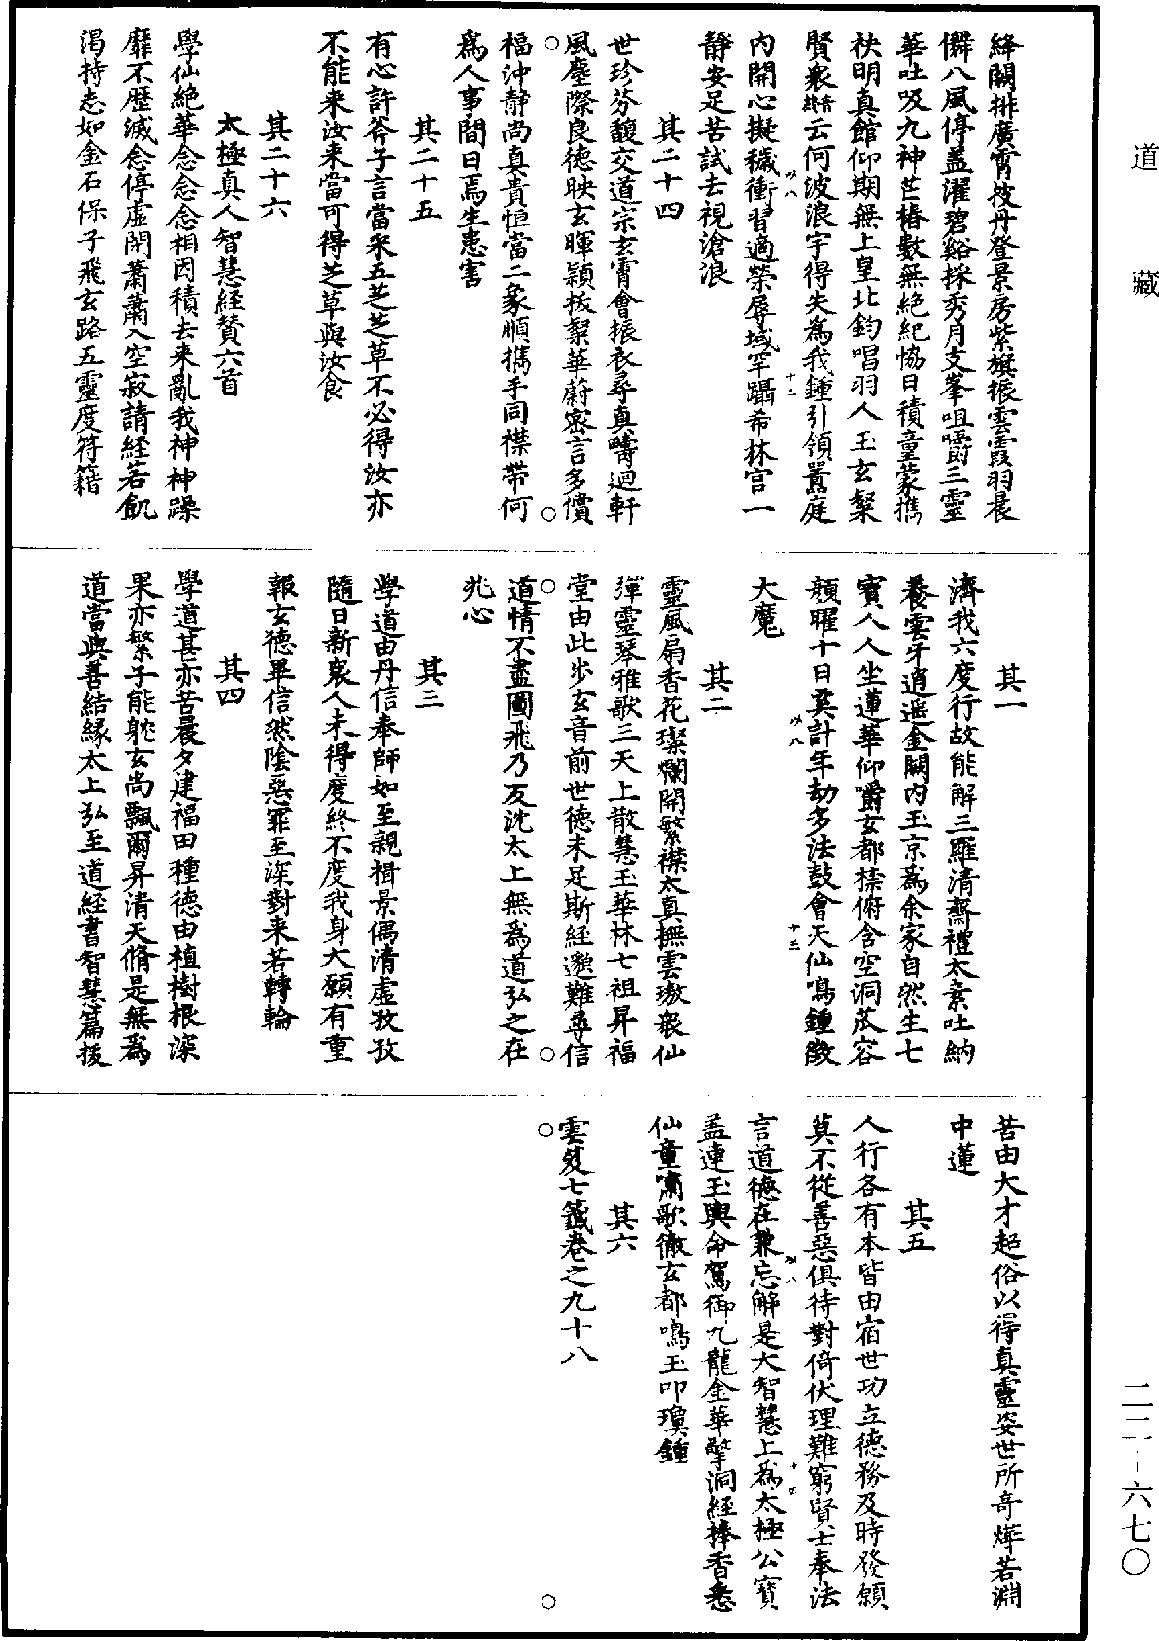 道藏
絳闕排廣霄披丹登景房紫旗振雲霞羽晨
儛八風停盖濯碧谿採秀月支峯咀嚼三靈
華吐吸九神芒椿數無絕紀恊日積童蒙携
袂明真館仰期無上皇北鈞唱羽人玉玄粲
賢衆㜑云何波浪宇得失為我鍾引領嚚庭
內開心擬穢衝習適榮辱域罕躡希林宫一
靜安足苦試去視滄浪
其二十四
世珍芬馥交道宗玄霄會振衣尋真疇迴軒
風塵際良德映玄暉穎拔粲華蔚密言多償
福沖靜尚真貴恒當二象順攜手同襟帶何
爲人事間日焉生患害
其二十五
有心許斧子言當采五芝芝草不必得汝亦
不能来汝来當可得芝草與汝食
其二十六
太極真人智慧經賛六首
學仙絶華念念念相因積去来亂我神神躁
靡不歷滅念停虚閑蕭蕭入空寂請經若飢
渴持志如金石保子飛玄路五靈度符籍
其一
濟我六度行故能解三羅清齋禮太素吐納
養雲牙逍遥金闕内玉京爲余家自然生七
寳人人坐蓮華仰嚼玄都㮈俯含空洞苽容
顔曜十日奚計年劫多法鼓會天仙鳴鍾徵
大魔
其二
靈風扇香花璨爛開繁襟太真撫雲璈衆仙
彈靈琴雅歌三天上散慧玉華林七祖昇福
堂由此步玄音前世德未足斯經邈難尋信
道情不盡圖飛乃反沈太上無為道弘之在
兆心
其三
學道由丹信奉師如至親揖景偶清虚孜孜
隨日新衆人未得度終不度我身大願有重
報玄德畢信然陰惡罪至深對来若轉輪
其四
學道甚亦苦晨夕建福田種德由植樹根深
果亦繁子能躭玄尚飄爾昇清天脩是無為
道當與善結緣太上弘至道經書智慧篇援
苦由大才超俗以得真靈姿世所奇燁若淵
中蓮
其五
人行各有本皆由宿世功立德務及時發願
莫不從善惡俱待對倚伏理難窮賢士奉法
言道德在兼忘解是大智慧上爲太極公寳
盖連玉輿命駕御九龍金華擎洞經捧香悉
仙童嘯歌徹玄都鳴玉叩瓊鍾
其六
雲笈七籤卷之九十八
二二-六七〇